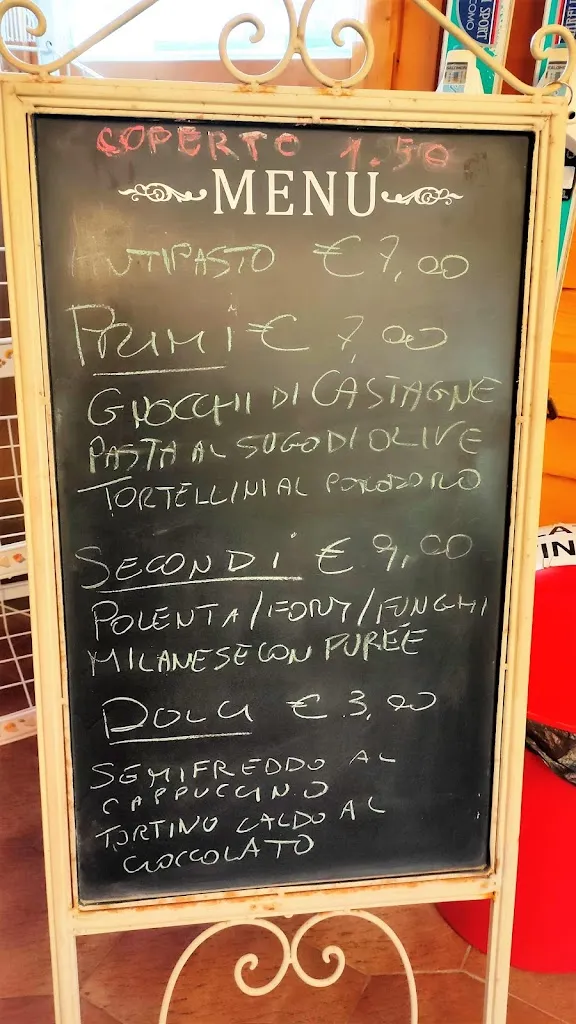 SPORT
COMO
COPERTO 1.50
MENU
ANTIPASTO € 7,00
PRIMI € 7,00
GNOCCHI DI CASTAGNE
PASTA AL SUGO DI OLIVE
TORTELLINI AL POMODORO
SECONDI € 9,00
POLENTA / FORM / FUNGHI
MILANESE CON PUREÉ
DOLCI € 3,00
SEMIFREDDO AL
CAPPUCCINO
TORTINO CALDO AL
CIOCCOLATO